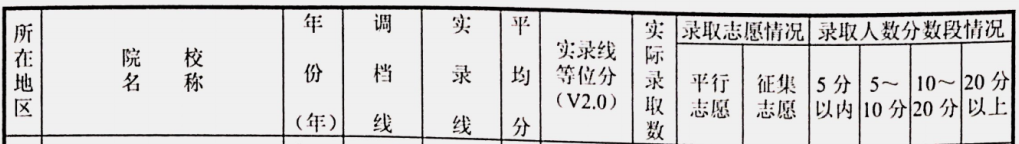 所在地区
院校名称
年份(年)
调档线
实录线
平均分
实录线
等位分
(V2.0)
实际录取数
录取志愿情况
平行
志愿
征集
志愿
录取人数分数段情况
5分
以内
5~
10分
10~
20分
20分
以上